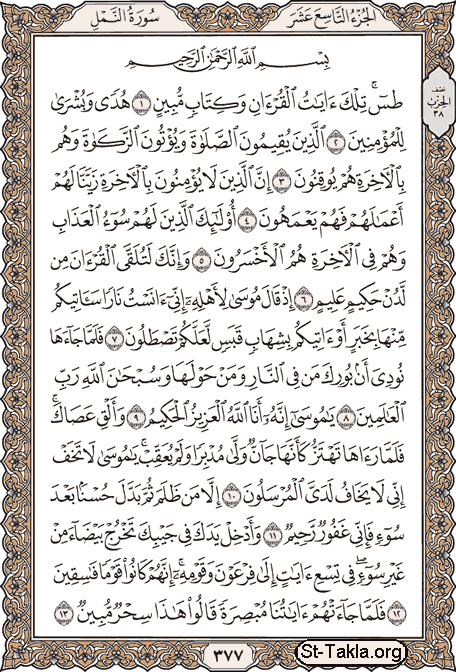 سُورَةُ النَّمْلِ
الجُزْءُ التَّاسِعَ عَشَرَ
نصف
الحزب
٣٨
بِسْمِ اللَّهِ الرَّحْمَٰنِ الرَّحِيمِ
طسٓ ۚ تِلْكَ ءَايَٰتُ ٱلْقُرْءَانِ وَكِتَابٍ مُّبِينٍ ١ هُدًى وَبُشْرَىٰ
لِلْمُؤْمِنِينَ ٢ ٱلَّذِينَ يُقِيمُونَ ٱلصَّلَوٰةَ وَيُؤْتُونَ ٱلزَّكَوٰةَ وَهُم
بِٱلْءَاخِرَةِ هُمْ يُوقِنُونَ ٣ إِنَّ ٱلَّذِينَ لَا يُؤْمِنُونَ بِٱلْءَاخِرَةِ زَيَّنَّا لَهُمْ
أَعْمَٰلَهُمْ فَهُمْ يَعْمَهُونَ ٤ أُو۟لَٰٓئِكَ ٱلَّذِينَ لَهُمْ سُوٓءُ ٱلْعَذَابِ
وَهُمْ فِى ٱلْءَاخِرَةِ هُمُ ٱلْأَخْسَرُونَ ٥ وَإِنَّكَ لَتُلَقَّى ٱلْقُرْءَانَ مِن
لَّدُنْ حَكِيمٍ عَلِيمٍ ٦ إِذْ قَالَ مُوسَىٰ لِأَهْلِهِۦٓ إِنِّىٓ ءَانَسْتُ نَارًا سَـَٔاتِيكُم
مِّنْهَا بِخَبَرٍ أَوْ ءَاتِيكُم بِشِهَابٍ قَبَسٍ لَّعَلَّكُمْ تَصْطَلُونَ ٧ فَلَمَّا جَآءَهَا
نُودِىَ أَنۢ بُورِكَ مَن فِى ٱلنَّارِ وَمَنْ حَوْلَهَا وَسُبْحَٰنَ ٱللَّهِ رَبِّ
ٱلْعَٰلَمِينَ ٨ يَٰمُوسَىٰٓ إِنَّهُۥٓ أَنَا ٱللَّهُ ٱلْعَزِيزُ ٱلْحَكِيمُ ٩ وَأَلْقِ عَصَاكَ ۚ
فَلَمَّا رَءَاهَا تَهْتَزُّ كَأَنَّهَا جَآنٌّ وَلَّىٰ مُدْبِرًا وَلَمْ يُعَقِّبْ ۚ يَٰمُوسَىٰ لَا تَخَفْ
إِنِّى لَا يَخَافُ لَدَىَّ ٱلْمُرْسَلُونَ ١٠ إِلَّا مَن ظَلَمَ ثُمَّ بَدَّلَ حُسْنًۢا بَعْدَ
سُوٓءٍ فَإِنِّى غَفُورٌ رَّحِيمٌ ١١ وَأَدْخِلْ يَدَكَ فِى جَيْبِكَ تَخْرُجْ بَيْضَآءَ مِنْ
غَيْرِ سُوٓءٍ ۖ فِى تِسْعِ ءَايَٰتٍ إِلَىٰ فِرْعَوْنَ وَقَوْمِهِۦٓ ۚ إِنَّهُمْ كَانُوا۟ قَوْمًا فَٰسِقِينَ
١٢ فَلَمَّا جَآءَتْهُمْ ءَايَٰتُنَا مُبْصِرَةً قَالُوا۟ هَٰذَا سِحْرٌ مُّبِينٌ ١٣
٣٧٧
St-Takla.org